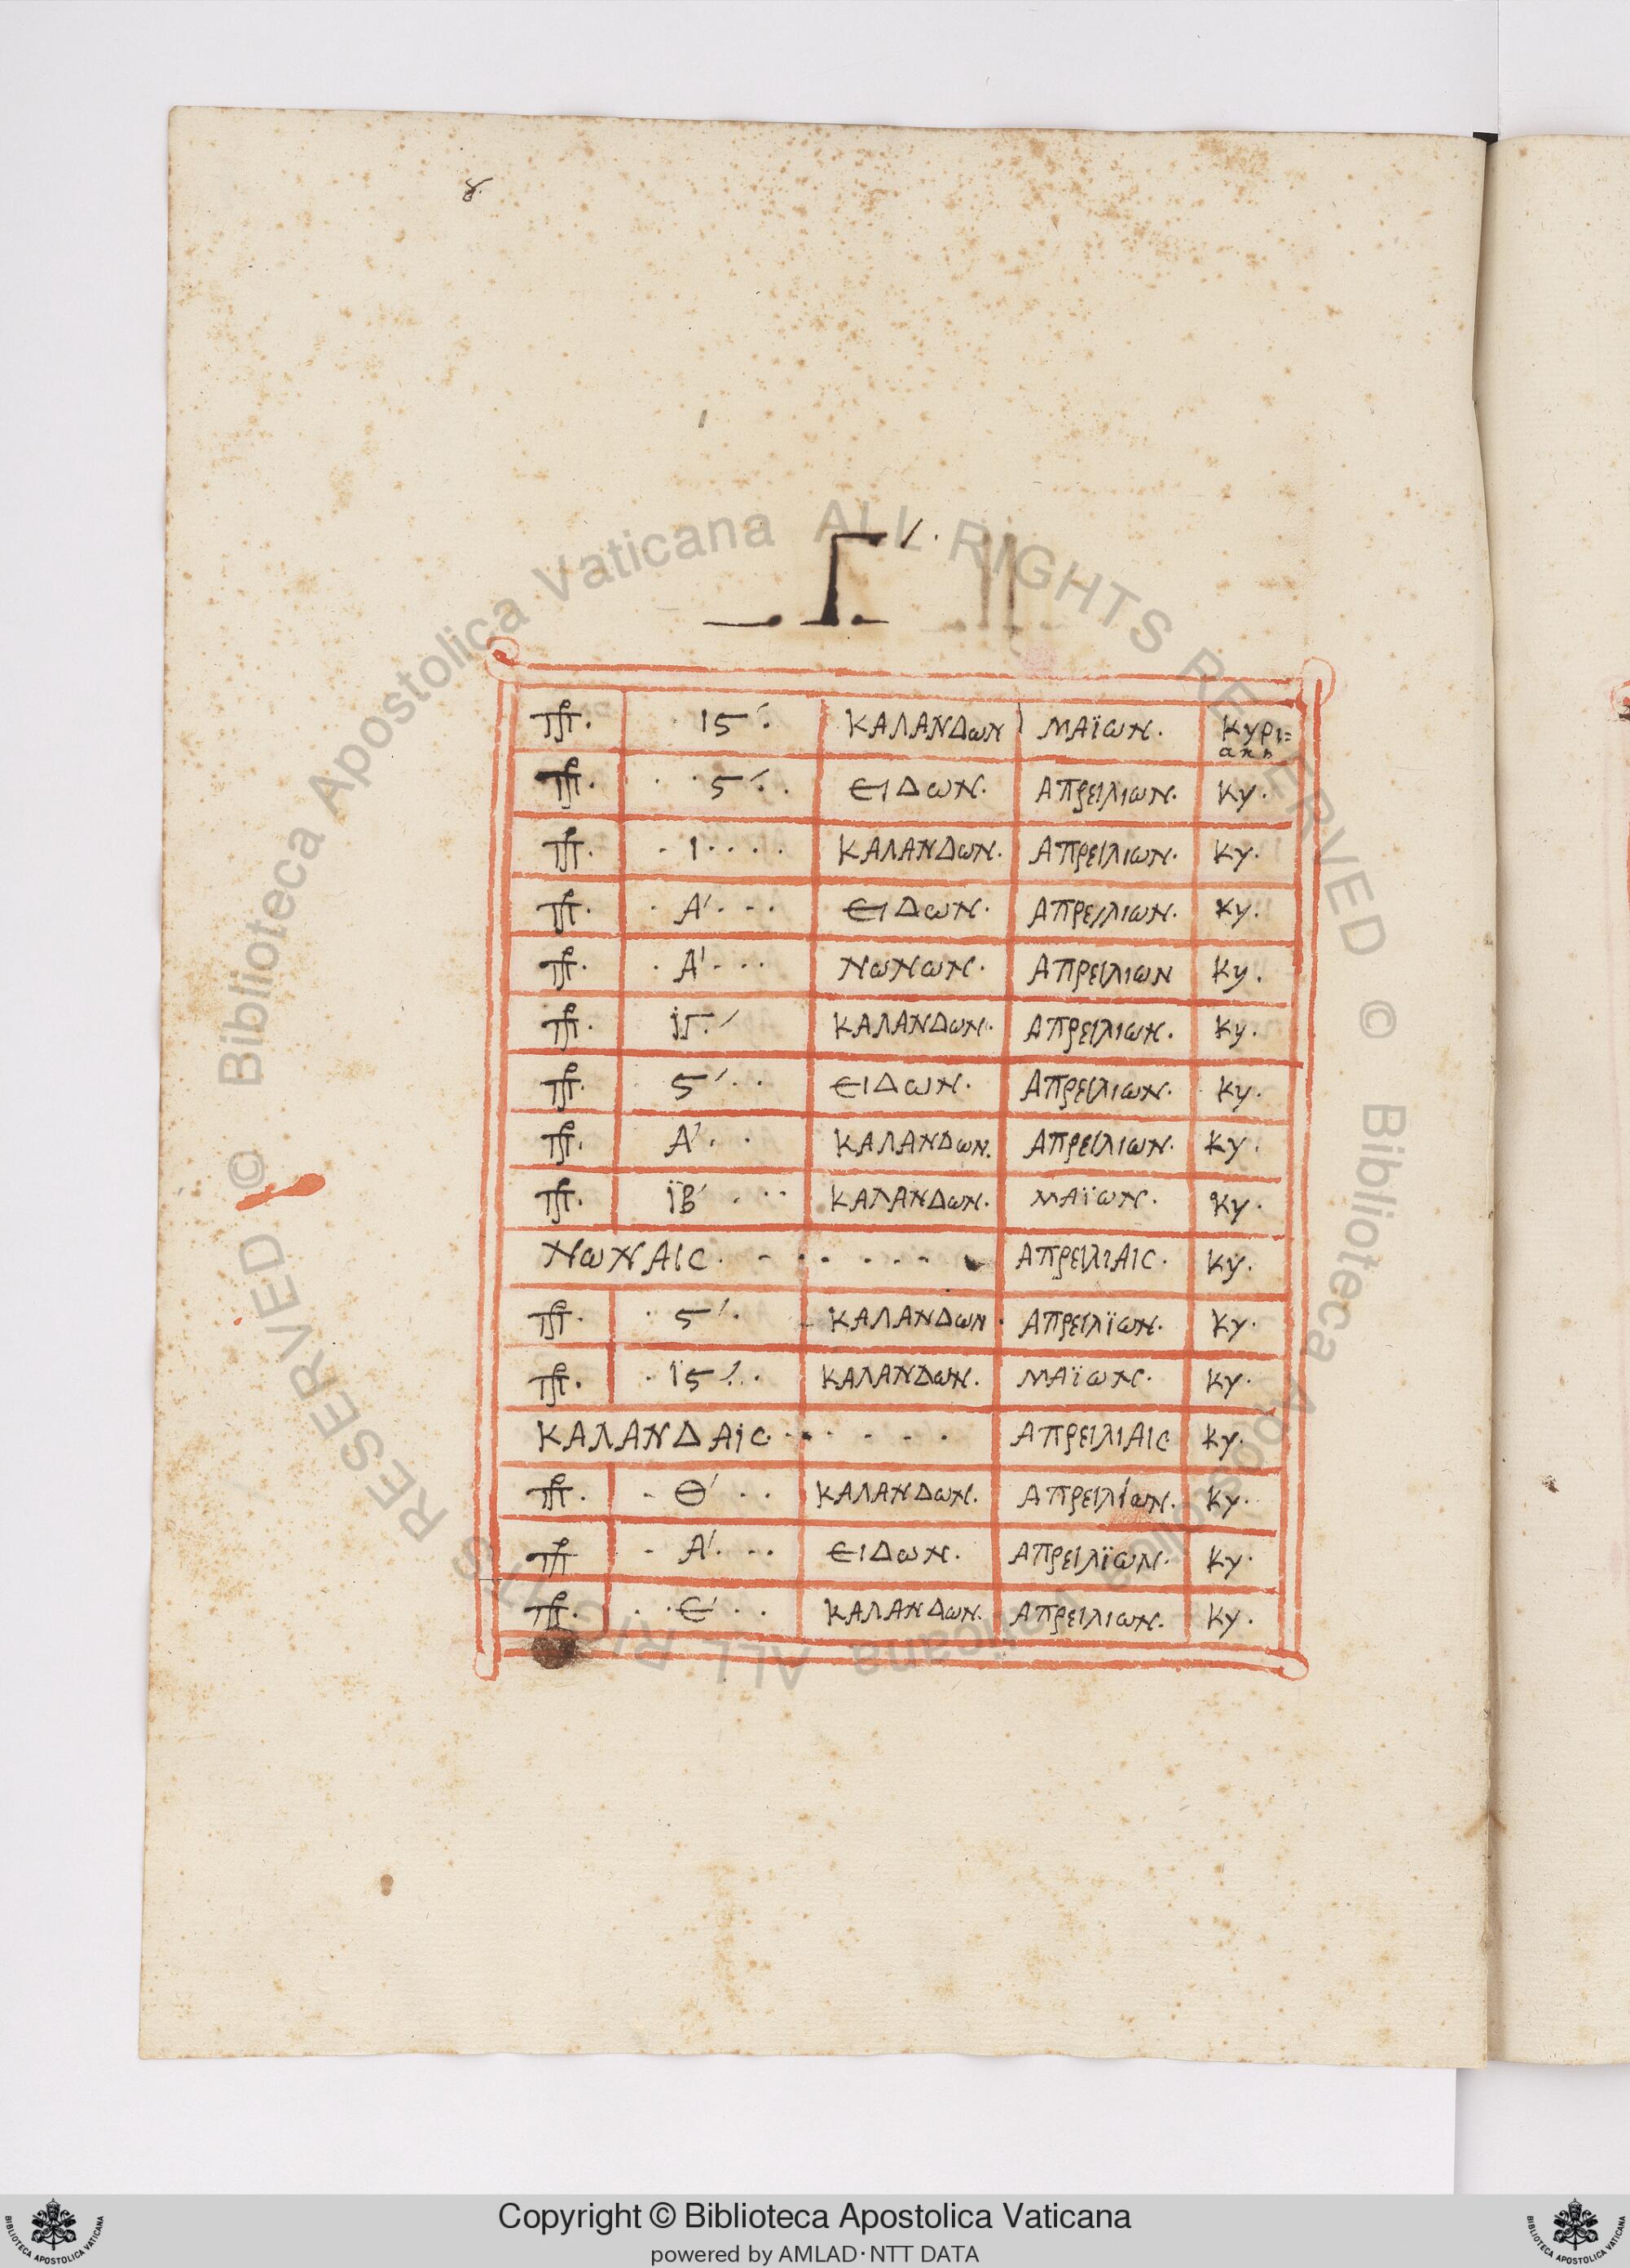 8.
Γ′.
ΠΡ. ΙϚ′. ΚΑΛΑΝΔωΝ ΜΑΪωΝ. Κυρι=
ακη
ΠΡ. Ϛ′. ΕΙΔωΝ. ΑΠΡΕΙΛΙωΝ. Κυ.
ΠΡ. Ι. ΚΑΛΑΝΔωΝ. ΑΠΡΕΙΛΙωΝ. Κυ.
ΠΡ. Α′. ΕΙΔωΝ. ΑΠΡΕΙΛΙωΝ. Κυ.
ΠΡ. Α′. ΝωΝωΝ. ΑΠΡΕΙΛΙωΝ Κυ.
ΠΡ. ΙΓ.′ ΚΑΛΑΝΔωΝ. ΑΠΡΕΙΛΙωΝ. Κυ.
ΠΡ. Ϛ′. ΕΙΔωΝ. ΑΠΡΕΙΛΙωΝ. Κυ.
ΠΡ. Α′. ΚΑΛΑΝΔωΝ. ΑΠΡΕΙΛΙωΝ. Κυ.
ΠΡ. ΪΒ′. ΚΑΛΑΝΔωΝ. ΜΑΪωΝ. Κυ.
ΝωΝΑΙC. ΑΠΡΕΙΛΙΑΙC. Κυ.
ΠΡ. Ϛ′. ΚΑΛΑΝΔωΝ. ΑΠΡΕΙΛΪωΝ. Κυ.
ΠΡ. ΪϚ′. ΚΑΛΑΝΔωΝ. ΜΑΪωΝ. Κυ.
ΚΑΛΑΝΔΑΙC. ΑΠΡΕΙΛΙΑΙC Κυ.
ΠΡ. Θ′. ΚΑΛΑΝΔωΝ. ΑΠΡΕΙΛΙωΝ. Κυ.
ΠΡ Α′. ΕΙΔωΝ. ΑΠΡΕΙΛΪωΝ. Κυ.
ΠΡ. Ε′. ΚΑΛΑΝΔωΝ. ΑΠΡΕΙΛΙωΝ. Κυ.
© Biblioteca Apostolica Vaticana ALL RIGHTS RESERVED © Biblioteca Apostolica Vaticana ALL RIGHTS RESERVED
Copyright © Biblioteca Apostolica Vaticana
powered by AMLAD·NTT DATA
BIBLIOTECA APOSTOLICA VATICANA
BIBLIOTECA APOSTOLICA VATICANA